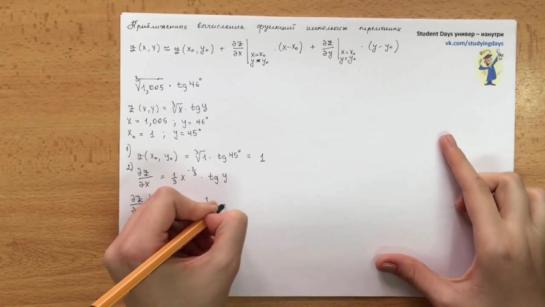 Приближенные вычисления функций нескольких переменных
Student Days универ – изнутри
vk.com/studyingdays
z(x,y) ≈ z(x₀,y₀) + ∂z/∂x |x=x₀ y=y₀ · (x-x₀) + ∂z/∂y |x=x₀ y=y₀ · (y-y₀)
∛1,005 · tg 46°
z(x,y) = ∛x · tg y
x = 1,005 ; y = 46°
x₀ = 1 ; y = 45°
1) z(x₀,y₀) = ∛1 · tg 45° = 1
2) ∂z/∂x = 1/3 x^-2/3 · tg y
∂z